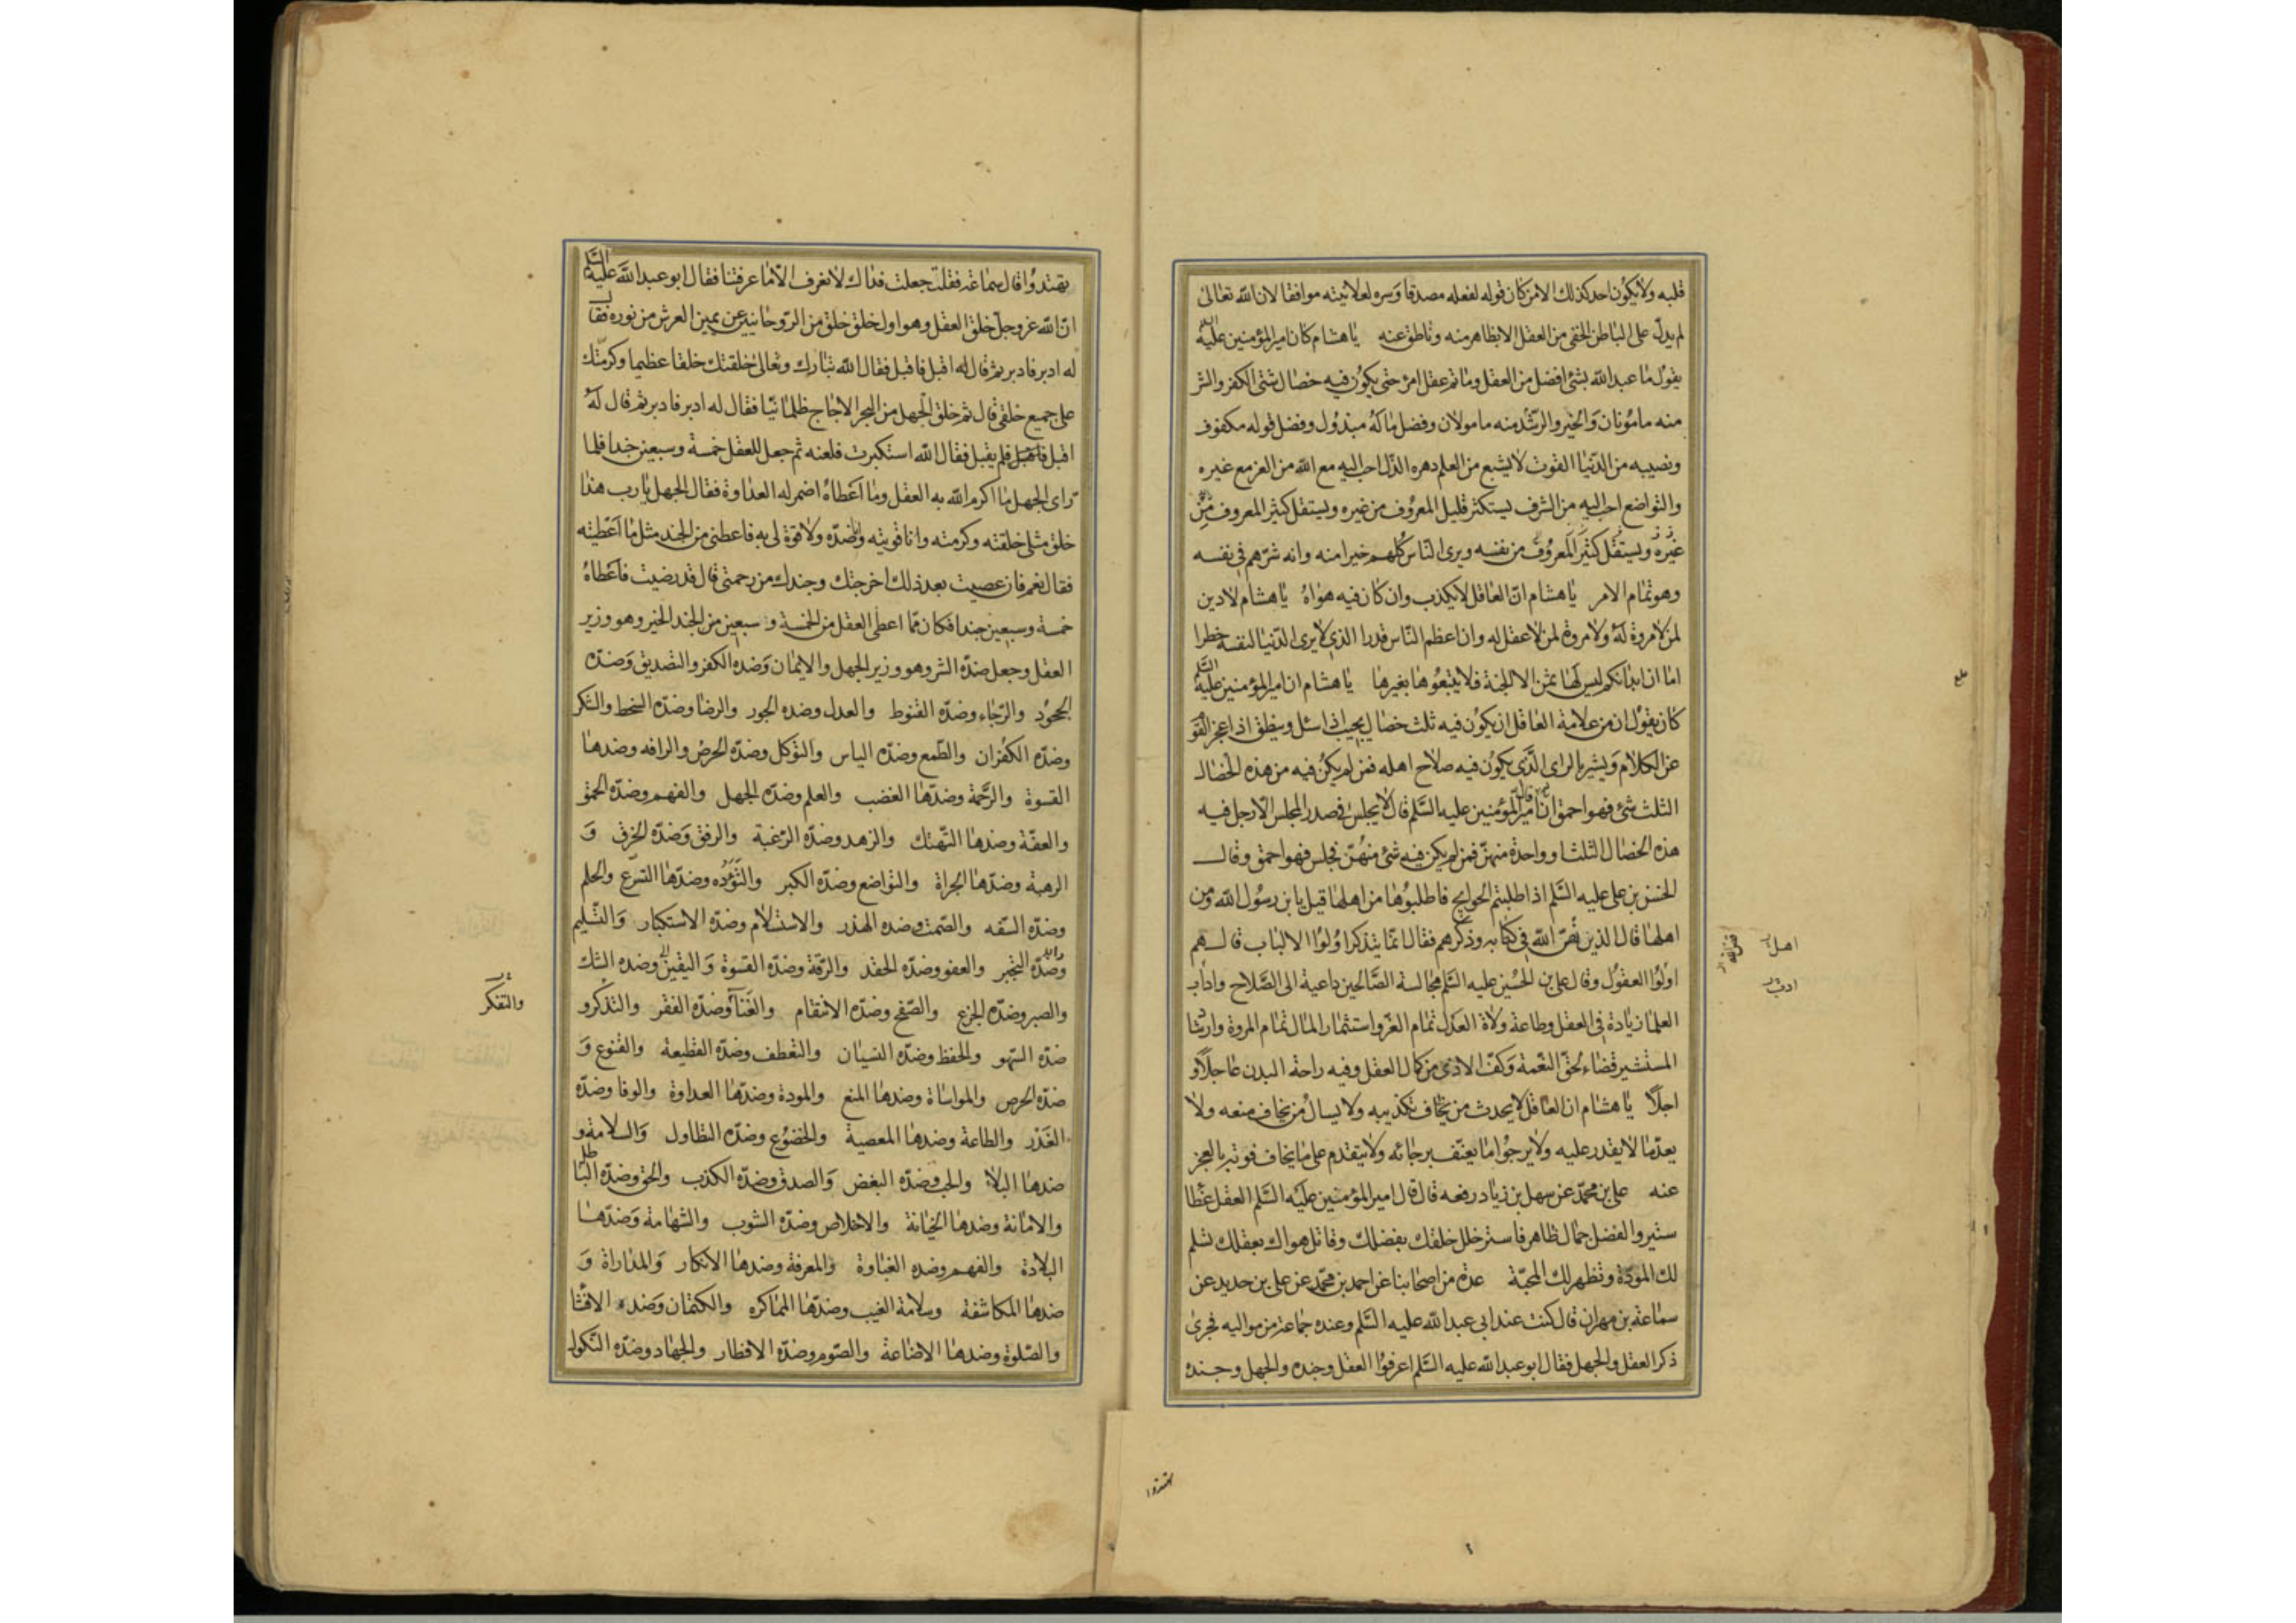 قلبه ولا يكون احد كذلك الا من كان قوله لفعله مصدقا وسره لعلانيته موافقا لان الله تعالى
لم يدل على الباطن الخفى من العقل الا بظاهر منه وناطق عنه يا هشام كان امير المؤمنين عليه السلم
يقول ما عبد الله بشئ افضل من العقل وما تم عقل امرئ حتى يكون فيه خصال شتى الكفر والشر
منه مامونان والخير والرشد منه مامولان وفضل ماله مبذول وفضل قوله مكفوف
ونصيبه من الدنيا القوت لا يشبع من العلم دهره الذل احب اليه مع الله من العز مع غيره
والتواضع احب اليه من الشرف يستكثر قليل المعروف من غيره ويستقل كثير المعروف من
غيره ويستقل كثير المعروف من نفسه ويرى الناس كلهم خيرا منه وانه شرهم فى نفسه
وهو تمام الامر يا هشام ان العاقل لا يكذب وان كان فيه هواه يا هشام لا دين
لمن لا مروة له ولا مروة لمن لا عقل له وان اعظم الناس قدرا الذى لا يرى الدنيا لنفسه خطرا
اما ان ابدانكم ليس لها ثمن الا الجنة فلا تبيعوها بغيرها يا هشام ان امير المؤمنين عليه السلم
كان يقول ان من علامة العاقل ان يكون فيه ثلث خصال يجيب اذا سئل وينطق اذا عجز القو
عن الكلام ويشير بالراى الذى يكون فيه صلاح اهله فمن لم يكن فيه من هذه الخصال
الثلث شئ فهو احمق ان امير المؤمنين عليه السلم قال لا يجلس فى صدر المجلس الا رجل فيه
هذه الخصال الثلث او واحدة منهن فمن لم يكن فيه شئ منهن فجلس فهو احمق وقال
الحسن بن على عليه السلم اذا طلبتم الحوايج فاطلبوها من اهلها قيل يا بن رسول الله ومن
اهلها قال الذين قص الله فى كتابه وذكرهم فقال انما يتذكر اولوا الالباب قال هم
اولوا العقول وقال على بن الحسين عليه السلم مجالسة الصالحين داعية الى الصلاح واداب
العلما زيادة فى العقل وطاعة ولاة العدل تمام العز واستثمار المال تمام المروة وارشا
المستشير قضاء لحق النعمة وكف الاذى من كمال العقل وفيه راحة البدن عاجلا و
اجلا يا هشام ان العاقل لا يحدث من يخاف تكذيبه ولا يسال من يخاف منعه ولا
يعد ما لا يقدر عليه ولا يرجو ما يعنف برجائه ولا يتقدم على ما يخاف فوته بالعجز
عنه على بن محمد عن سهل بن زياد رفعه قال قال امير المؤمنين عليه السلم العقل غطا
ستير والفضل جمال ظاهر فاستر خلل خلقك بفضلك وقاتل هواك بعقلك تسلم
لك المودة وتظهر لك المحبة عدة من اصحابنا عن احمد بن محمد عن على بن حديد عن
سماعة بن مهران قال كنت عند ابى عبد الله عليه السلم وعنده جماعة من مواليه فجرى
ذكر العقل والجهل فقال ابو عبد الله عليه السلم اعرفوا العقل وجنده والجهل وجنده
اهل
ادب
تهتدوا
تهتدوا قال سماعة فقلت جعلت فداك لا نعرف الا ما عرفتنا فقال ابو عبد الله عليه السلم
ان الله عز وجل خلق العقل وهو اول خلق خلق من الروحانيين عن يمين العرش من نوره فقال
له ادبر فادبر ثم قال له اقبل فاقبل فقال الله تبارك وتعالى خلقتك خلقا عظيما وكرمتك
على جميع خلقى قال ثم خلق الجهل من البحر الاجاج ظلمانيا فقال له ادبر فادبر ثم قال له
اقبل فلم يقبل فقال الله استكبرت فلعنه ثم جعل للعقل خمسة وسبعين جندا فلما
راى الجهل ما اكرم الله به العقل وما اعطاه اضمر له العداوة فقال الجهل يا رب هذا
خلق مثلى خلقته وكرمته وانا قويته وانا ضده ولا قوة لى به فاعطنى من الجند مثل ما اعطيته
فقال نعم فان عصيت بعد ذلك اخرجتك وجندك من رحمتى قال قد رضيت فاعطاه
خمسة وسبعين جندا فكان مما اعطى العقل من الخمسة وسبعين من الجند الخير وهو وزير
العقل وجعل ضده الشر وهو وزير الجهل والايمان وضده الكفر والتصديق وضده
الجحود والرجاء وضده القنوط والعدل وضده الجور والرضا وضده السخط والشكر
وضده الكفران والطمع وضده الياس والتوكل وضده الحرص والرافه وضدها
القسوة والرحمة وضدها الغضب والعلم وضده الجهل والفهم وضده الحمق
والعفة وضدها التهتك والزهد وضده الرغبة والرفق وضده الخرق و
الرهبة وضدها الجراة والتواضع وضده الكبر والتؤده وضدها التسرع والحلم
وضده السفه والصمت وضده الهذر والاستسلام وضده الاستكبار والتسليم
وضده التجبر والعفو وضده الحقد والرقة وضده القسوة واليقين وضده الشك
والصبر وضده الجزع والصفح وضده الانتقام والغنا وضده الفقر والتذكر و
ضده السهو والحفظ وضده النسيان والتعطف وضده القطيعة والقنوع و
ضده الحرص والمواساة وضدها المنع والمودة وضدها العداوة والوفا وضده
الغدر والطاعة وضدها المعصية والخضوع وضده التطاول والسلامة و
ضدها البلاء والحب وضده البغض والصدق وضده الكذب والحق وضده الباطل
والامانة وضدها الخيانة والاخلاص وضده الشوب والشهامة وضدها
البلادة والفهم وضده الغباوة والمعرفة وضدها الانكار والمداراة و
ضدها المكاشفة وسلامة الغيب وضدها المماكره والكتمان وضده الافشا
والصلوة وضدها الاضاعة والصوم وضده الافطار والجهاد وضده النكول
والتفكر